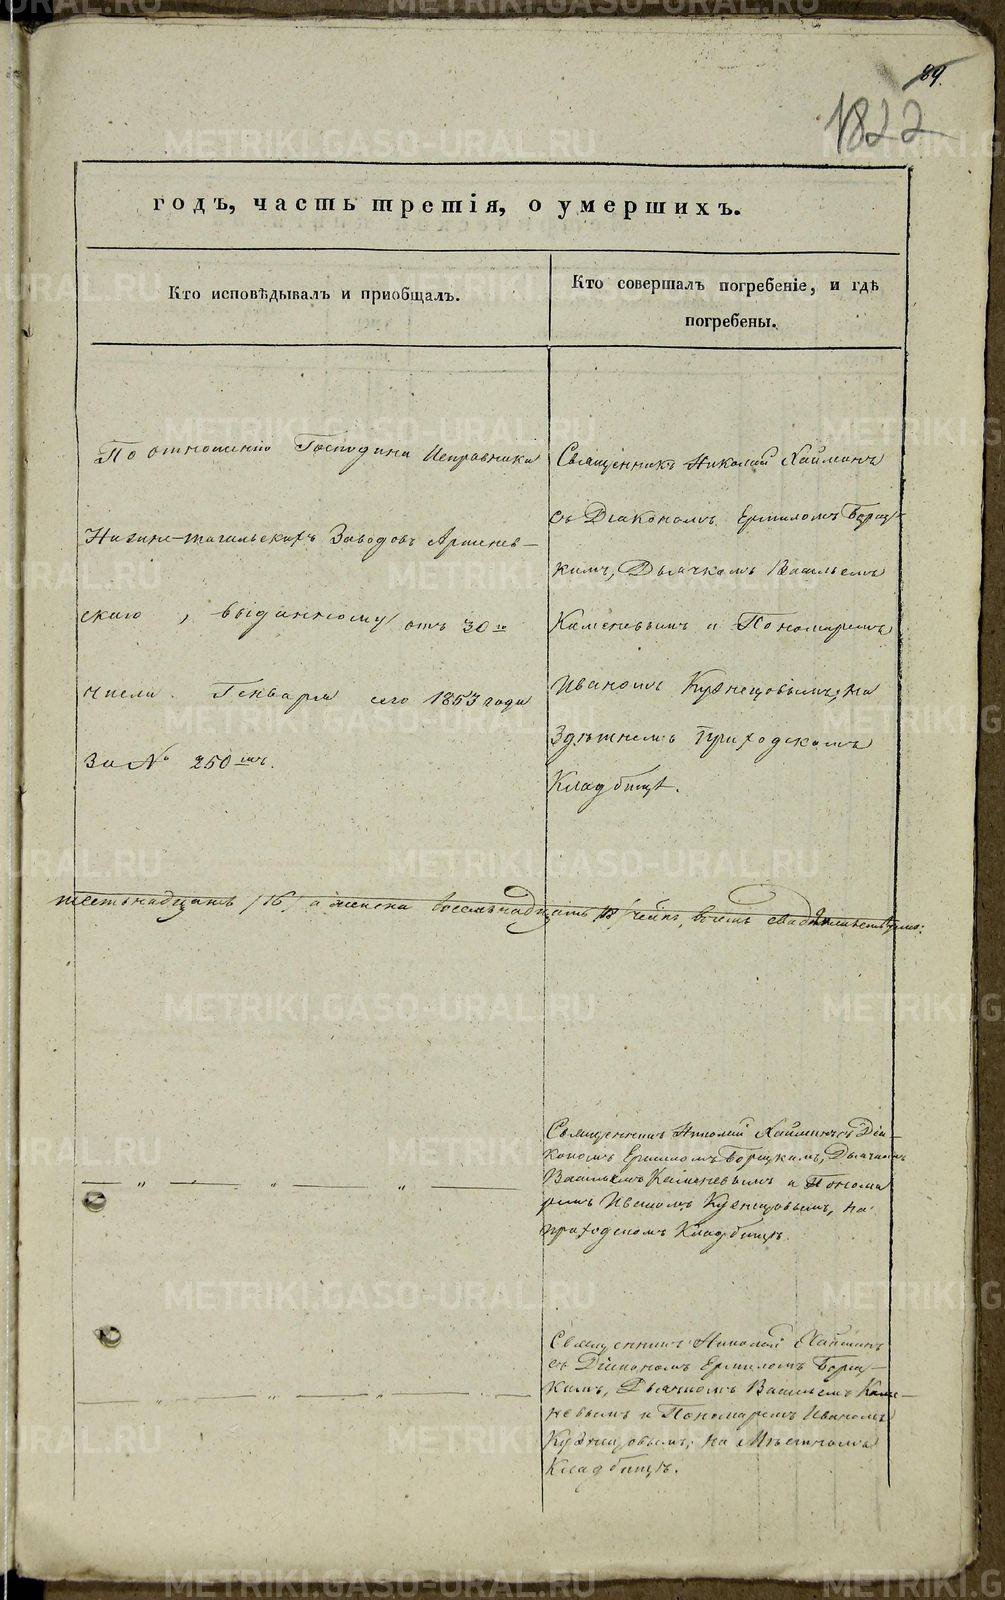 89.
1822
годъ, часть третія, о умершихъ.
Кто исповѣдывалъ и пріобщалъ.
Кто совершалъ погребеніе, и гдѣ
погребены.
По отношенію Господина Исправника
Нижне-тагильскихъ Заводовъ
скаго, выданному отъ 30 го
числа Генваря сего 1853 года
За № 250 мъ.
Священникъ Николай Хайминъ
съ Діакономъ Ермиломъ Борец-
кимъ, Дьячкомъ Васильемъ
Каменевымъ и Пономаремъ
Иваномъ Кузнецовымъ, на
Здѣшнемъ приходскомъ
Кладбищѣ.
шестьнадцать /16/ а женска восемьнадцать 18/
Священникъ Николай Хайминъ съ Діа-
кономъ Ермиломъ Борецкимъ, Дьячкомъ
Васильемъ Каменевымъ и Понома
ремъ Иваномъ Кузнецовымъ, на
приходскомъ Кладбищѣ.
Священникъ Николай Хайминъ
съ Діакономъ Ермиломъ Борец-
кимъ, Дьячкомъ Васильемъ Каме-
невымъ и Пономаремъ Иваномъ
Кузнецовымъ, на Мѣстномъ
Кладбищѣ.
METRIKI.GASO-URAL.RU